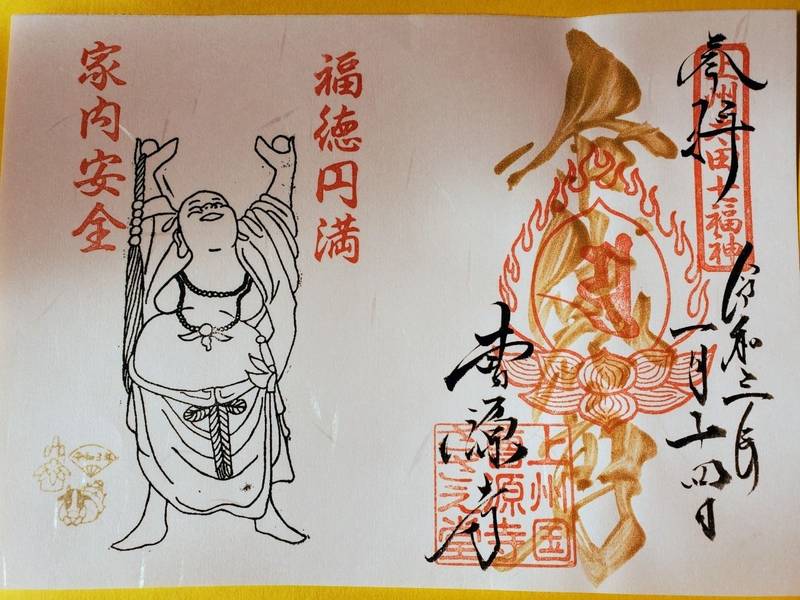 奉拝
上州太田七福神
令和三年
一月
四日
曹源寺
上州
曹源寺
堂
福徳円満
家内安全
令和3年